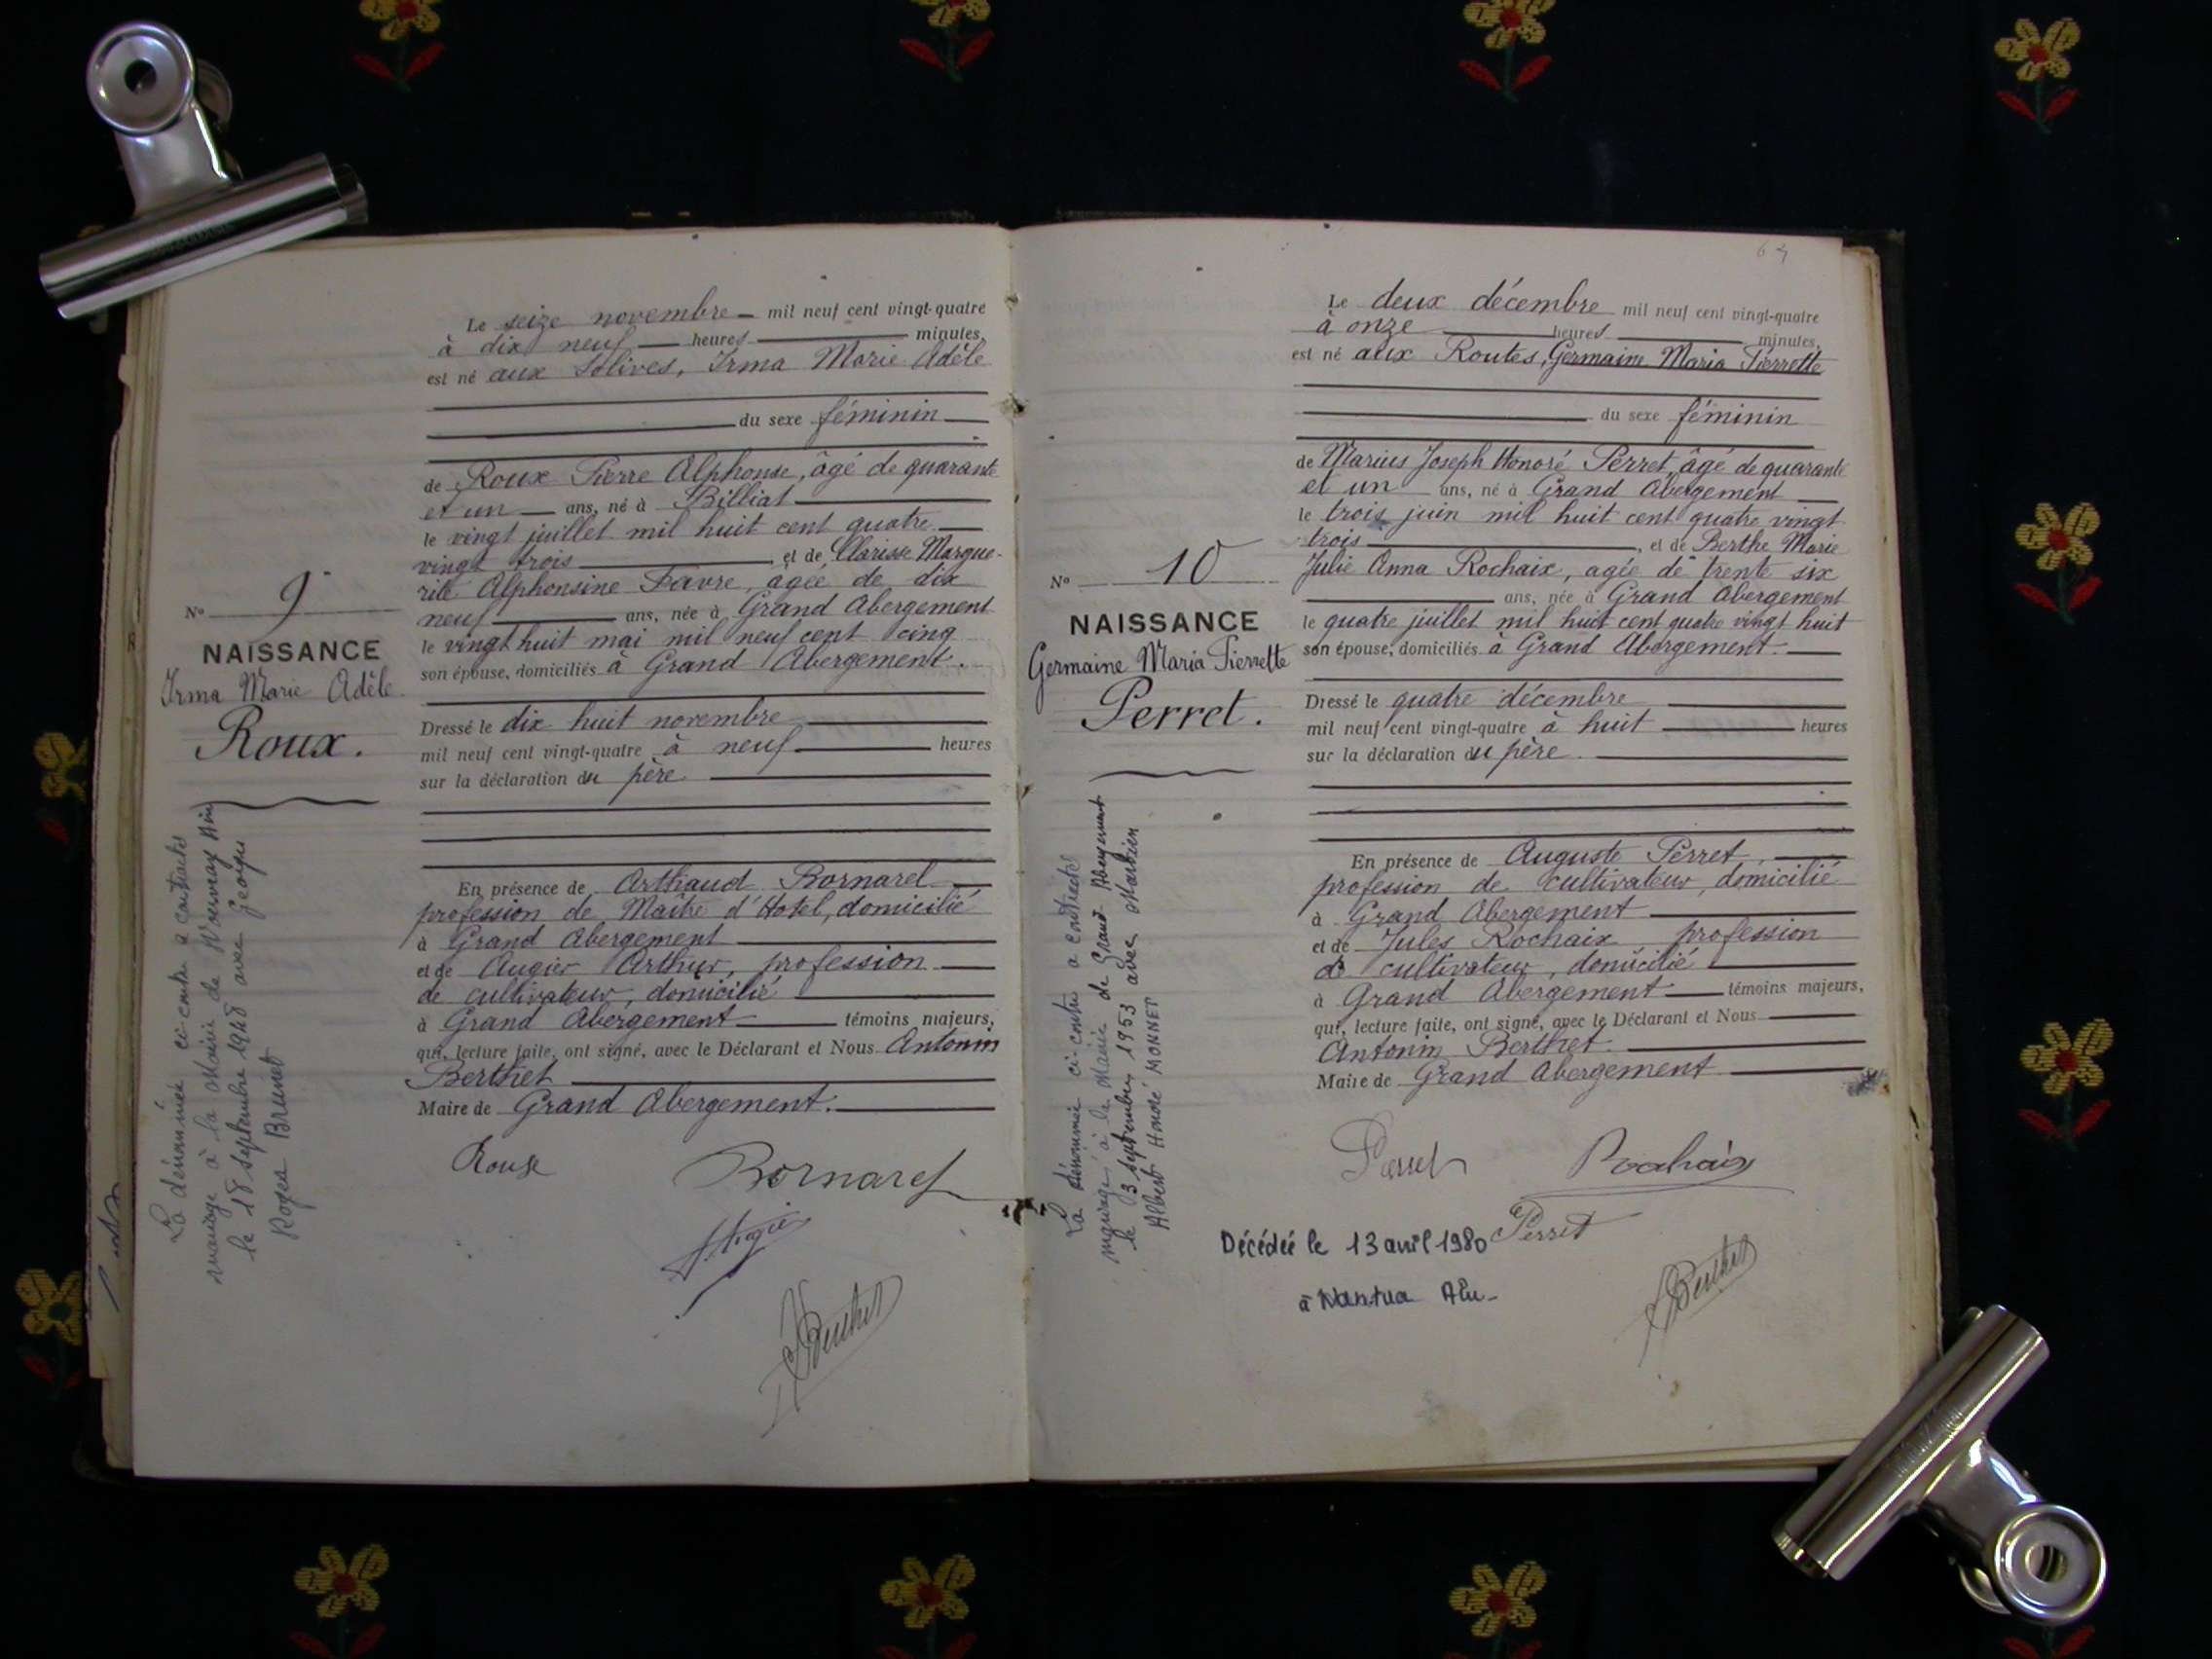 Le seize novembre mil neuf cent vingt-quatre
à dix neuf heures minutes,
est né aux Solives, Irma Marie Adèle
du sexe féminin
de Roux Pierre Alphonse, âgé de quarante
et un ans, né à Billiat
le vingt juillet mil huit cent quatre
vingt trois, et de Clarisse Margue-
rite Alphonsine Favre, âgée de dix
neuf ans, née à Grand Abergement
le vingt huit mai mil neuf cent cinq
son épouse, domiciliés à Grand Abergement.
Dressé le dix huit novembre
mil neuf cent vingt-quatre à neuf heures
sur la déclaration du père
En présence de Arthaud Bornarel
profession de Maître d'Hotel, domicilié
à Grand Abergement
et de Augier Arthur, profession
de cultivateur, domicilié
à Grand Abergement témoins majeurs,
qui, lecture faite, ont signé, avec le Déclarant et Nous Antonin
Berthet
Maire de Grand Abergement.
Roux
Bornarel
Berthet
N° 9
NAISSANCE
Irma Marie Adèle
Roux.
La dénommée ci-contre a contracté
mariage à la Mairie de
le 18 septembre 1948 avec Georges
Roger Brunet
64
Le deux décembre mil neuf cent vingt-quatre
à onze heures minutes,
est né aux Routes, Germaine Maria Pierrette
du sexe féminin
de Marius Joseph Honoré Perret, âgé de quarante
et un ans, né à Grand Abergement
le trois juin mil huit cent quatre vingt
trois, et de Berthe Marie
Julie Anna Rochaix, agée de trente six
ans, née à Grand Abergement
le quatre juillet mil huit cent quatre vingt huit
son épouse, domiciliés à Grand Abergement.
Dressé le quatre décembre
mil neuf cent vingt-quatre à huit heures
sur la déclaration du père.
En présence de Auguste Perret,
profession de cultivateur, domicilié
à Grand Abergement
et de Jules Rochaix profession
de cultivateur, domicilié
à Grand Abergement témoins majeurs,
qui, lecture faite, ont signé, avec le Déclarant et Nous
Antonin Berthet.
Maire de Grand Abergement
Perret
Rochaix
Perret
Berthet
Décédée le 13 avril 1980
à Nantua Ain-
N° 10
NAISSANCE
Germaine Maria Pierrette
Perret.
La dénommée ci-contre a contracté
mariage à la Mairie de Grand Abergement
le 3 septembre 1953 avec
Albert Honoré MONNET